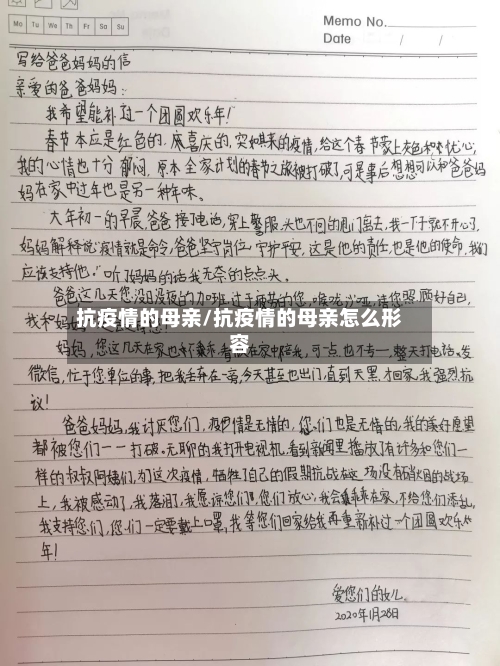 Memo No.
Mo Tu We Th Fr Sa Su
Date / /
写给爸爸妈妈的信
亲爱的爸爸妈妈：
我希望能补过一个团圆欢乐年！
春节本应是红色的，喜庆的，突如其来的疫情，给这个春节蒙上灰色和忧心，
我的心情也十分郁闷，原本全家计划的春节之旅被打破了，可是事后想想可以和爸爸妈
妈在家中过年也是另一种年味。
大年初一的早晨，爸爸接了电话，穿上警服，头也不回的离去，我一下子就不开心了，
妈妈解释说：疫情就是命令，爸爸坚守岗位，守护平安，这是他的责任，也是他的使命，我们
应该支持他，听了妈妈的话我无奈的点点头。
爸爸这几天您没日没夜的加班，过于疲劳的您，喉咙沙哑，请您照顾好自己，
我和妈妈
抗疫情的母亲/抗疫情的母亲怎么形
容
妈妈，您这几天在家也在家陪我，可一点也不专一，整天打电话、发
微信，忙于您单位的事，把我丢弃在一旁，今天甚至也出门，直到天黑才回家，我强烈抗
议！
爸爸妈妈，我讨厌您们，疫情是无情的，您们也是无情的，我的美好愿望
都被您们一一打破。无聊的我打开电视机，看到新闻里播放了有许多和您们一
样的叔叔阿姨们，为了这次疫情，牺牲了自己的假期抗战在这场没有硝烟的战场
上，我被感动了，我落泪了，我愿谅您们！您们放心，我会乖乖在家，不给您们添乱，
我支持您们，您们一定要戴上口罩，我等您们回家给我再重新补过一个团圆欢乐
年！
爱您们的女儿
2020年1月28日